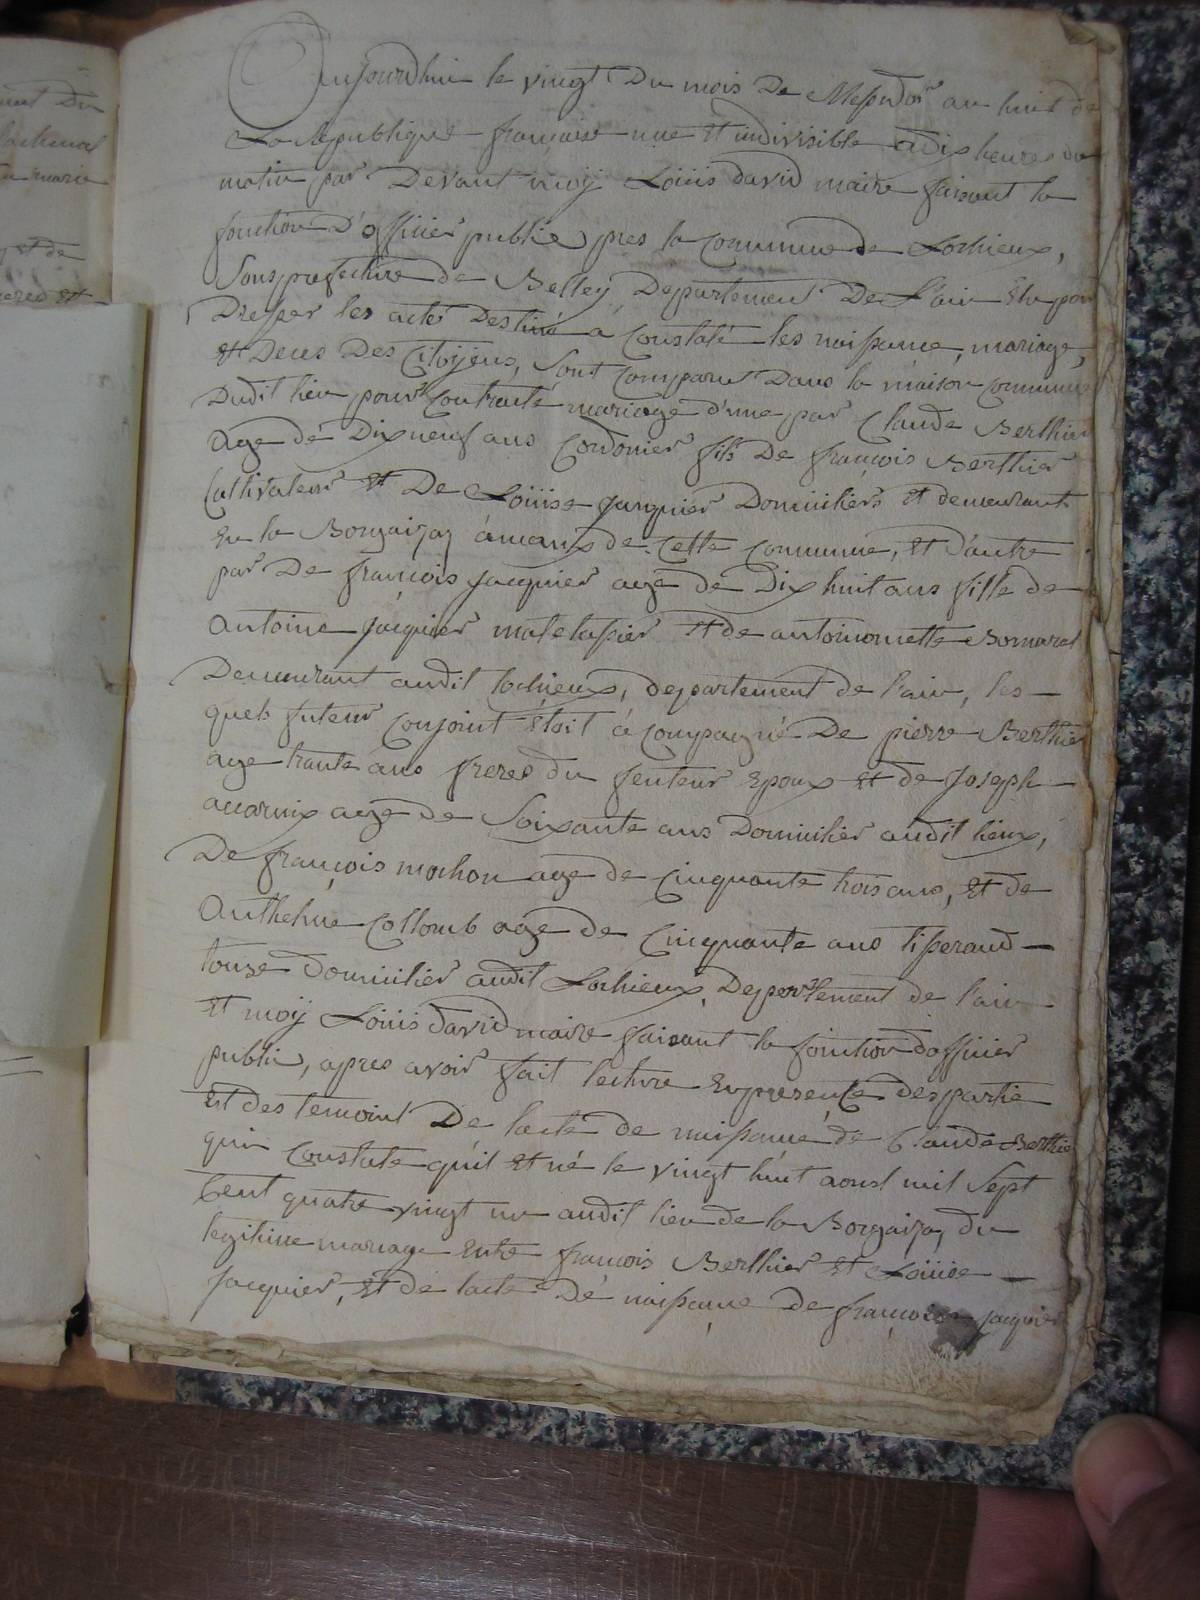 ment Du
en marie
et de
Aujourdhui le vingt Du mois De Messidor an huit de
La Republique françoise une et indivisible a dix heures du
matin par Devant moÿ Loüis david maire faisant la
fonction D'officier public pres la Commune de Lochieux,
Sousprefecture de Belleÿ Departement De L'ain Elu pour
Dresser les acte Destiné a Constaté les naissance, mariage,
et Deces Des Citoÿens, Sont Comparu Dans la maison Commune
Dudit lieu pour Contracté mariage d'une par Claude Berthier
age de Dix neuf ans Cordonier fils De françois Berthier
Cultivateur et De Loüise Jacquier Domiciliers et demeurant
En la Borgaizaz ameaux de Cette Commune, et d'autre
par De françois Jacquier age de Dix huit ans fille de
antoine Jacquier matelassier et de antoinomette Bomarel
Demeurant audit lochieux, departement de l'ain, les
quels futeur Conjoint Etoit acompagné De pierre Berthier
age trante ans freres du feuteur Epoux et de Joseph
accarnix age de Soixante ans Domicilier audit lieux,
De françois mochon age de Cinquante trois ans, et de
Anthelme Collomb age de Cinquante ans tisserand
touse domicilier audit Lochieux, Departement de l'ain
et moÿ Loüis david maire faisant la fonction dofficier
public, apres avoir fait lecture En presence des partie
Et des temoint De lacte de naissance de Claude Berthier
qui Constate qu'il et né le vingt huit aoust mil Sept
Cent quatre vingt un audit lieu de la Borgaizaz du
legitime mariage Entre françois Berthier et Loüise
Jacquier, et de lacte De naissance De françoise Jacquier